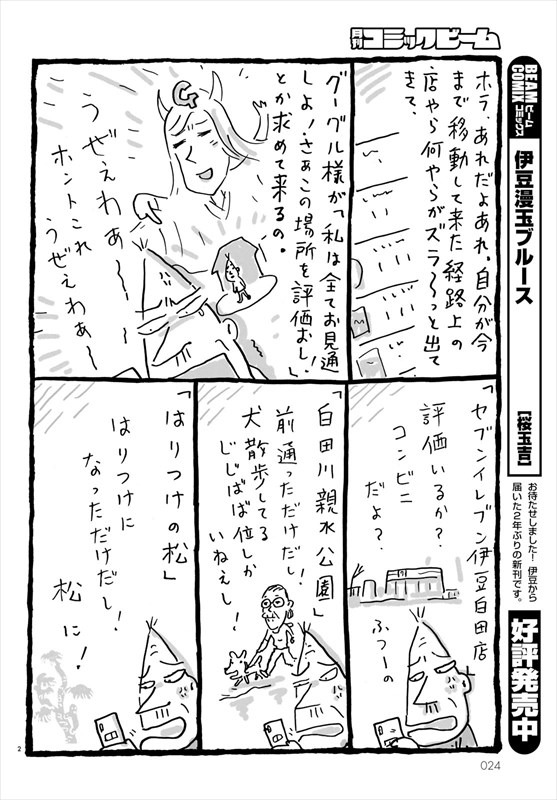 月刊コミックビーム
BEAM COMIX
ビームコミックス
伊豆漫玉ブルース
[桜玉吉]
お待たせしました! 伊豆から
届いた2年ぶりの新刊です。
好評発売中
ホラ、あれだよあれ、自分が今
まで移動して来た経路上の
店やら何やらがズラ〜〜っと出て
きて、
グーグル様が「私は全てお見通
しよ!さぁこの場所を評価おし!」
とか求めて来るの。
G
うぜぇわぁ〜〜
ホントこれ
うぜぇわぁ〜〜
「セブンイレブン伊豆白田店」
評価いるか?
コンビニ
だよ?
ふつーの
「白田川親水公園」
前通っただけだし!
犬散歩してる
じじばば位しか
いねえし!
「はりつけの松」
はりつけに
なっただけだし!
松に!
2
024